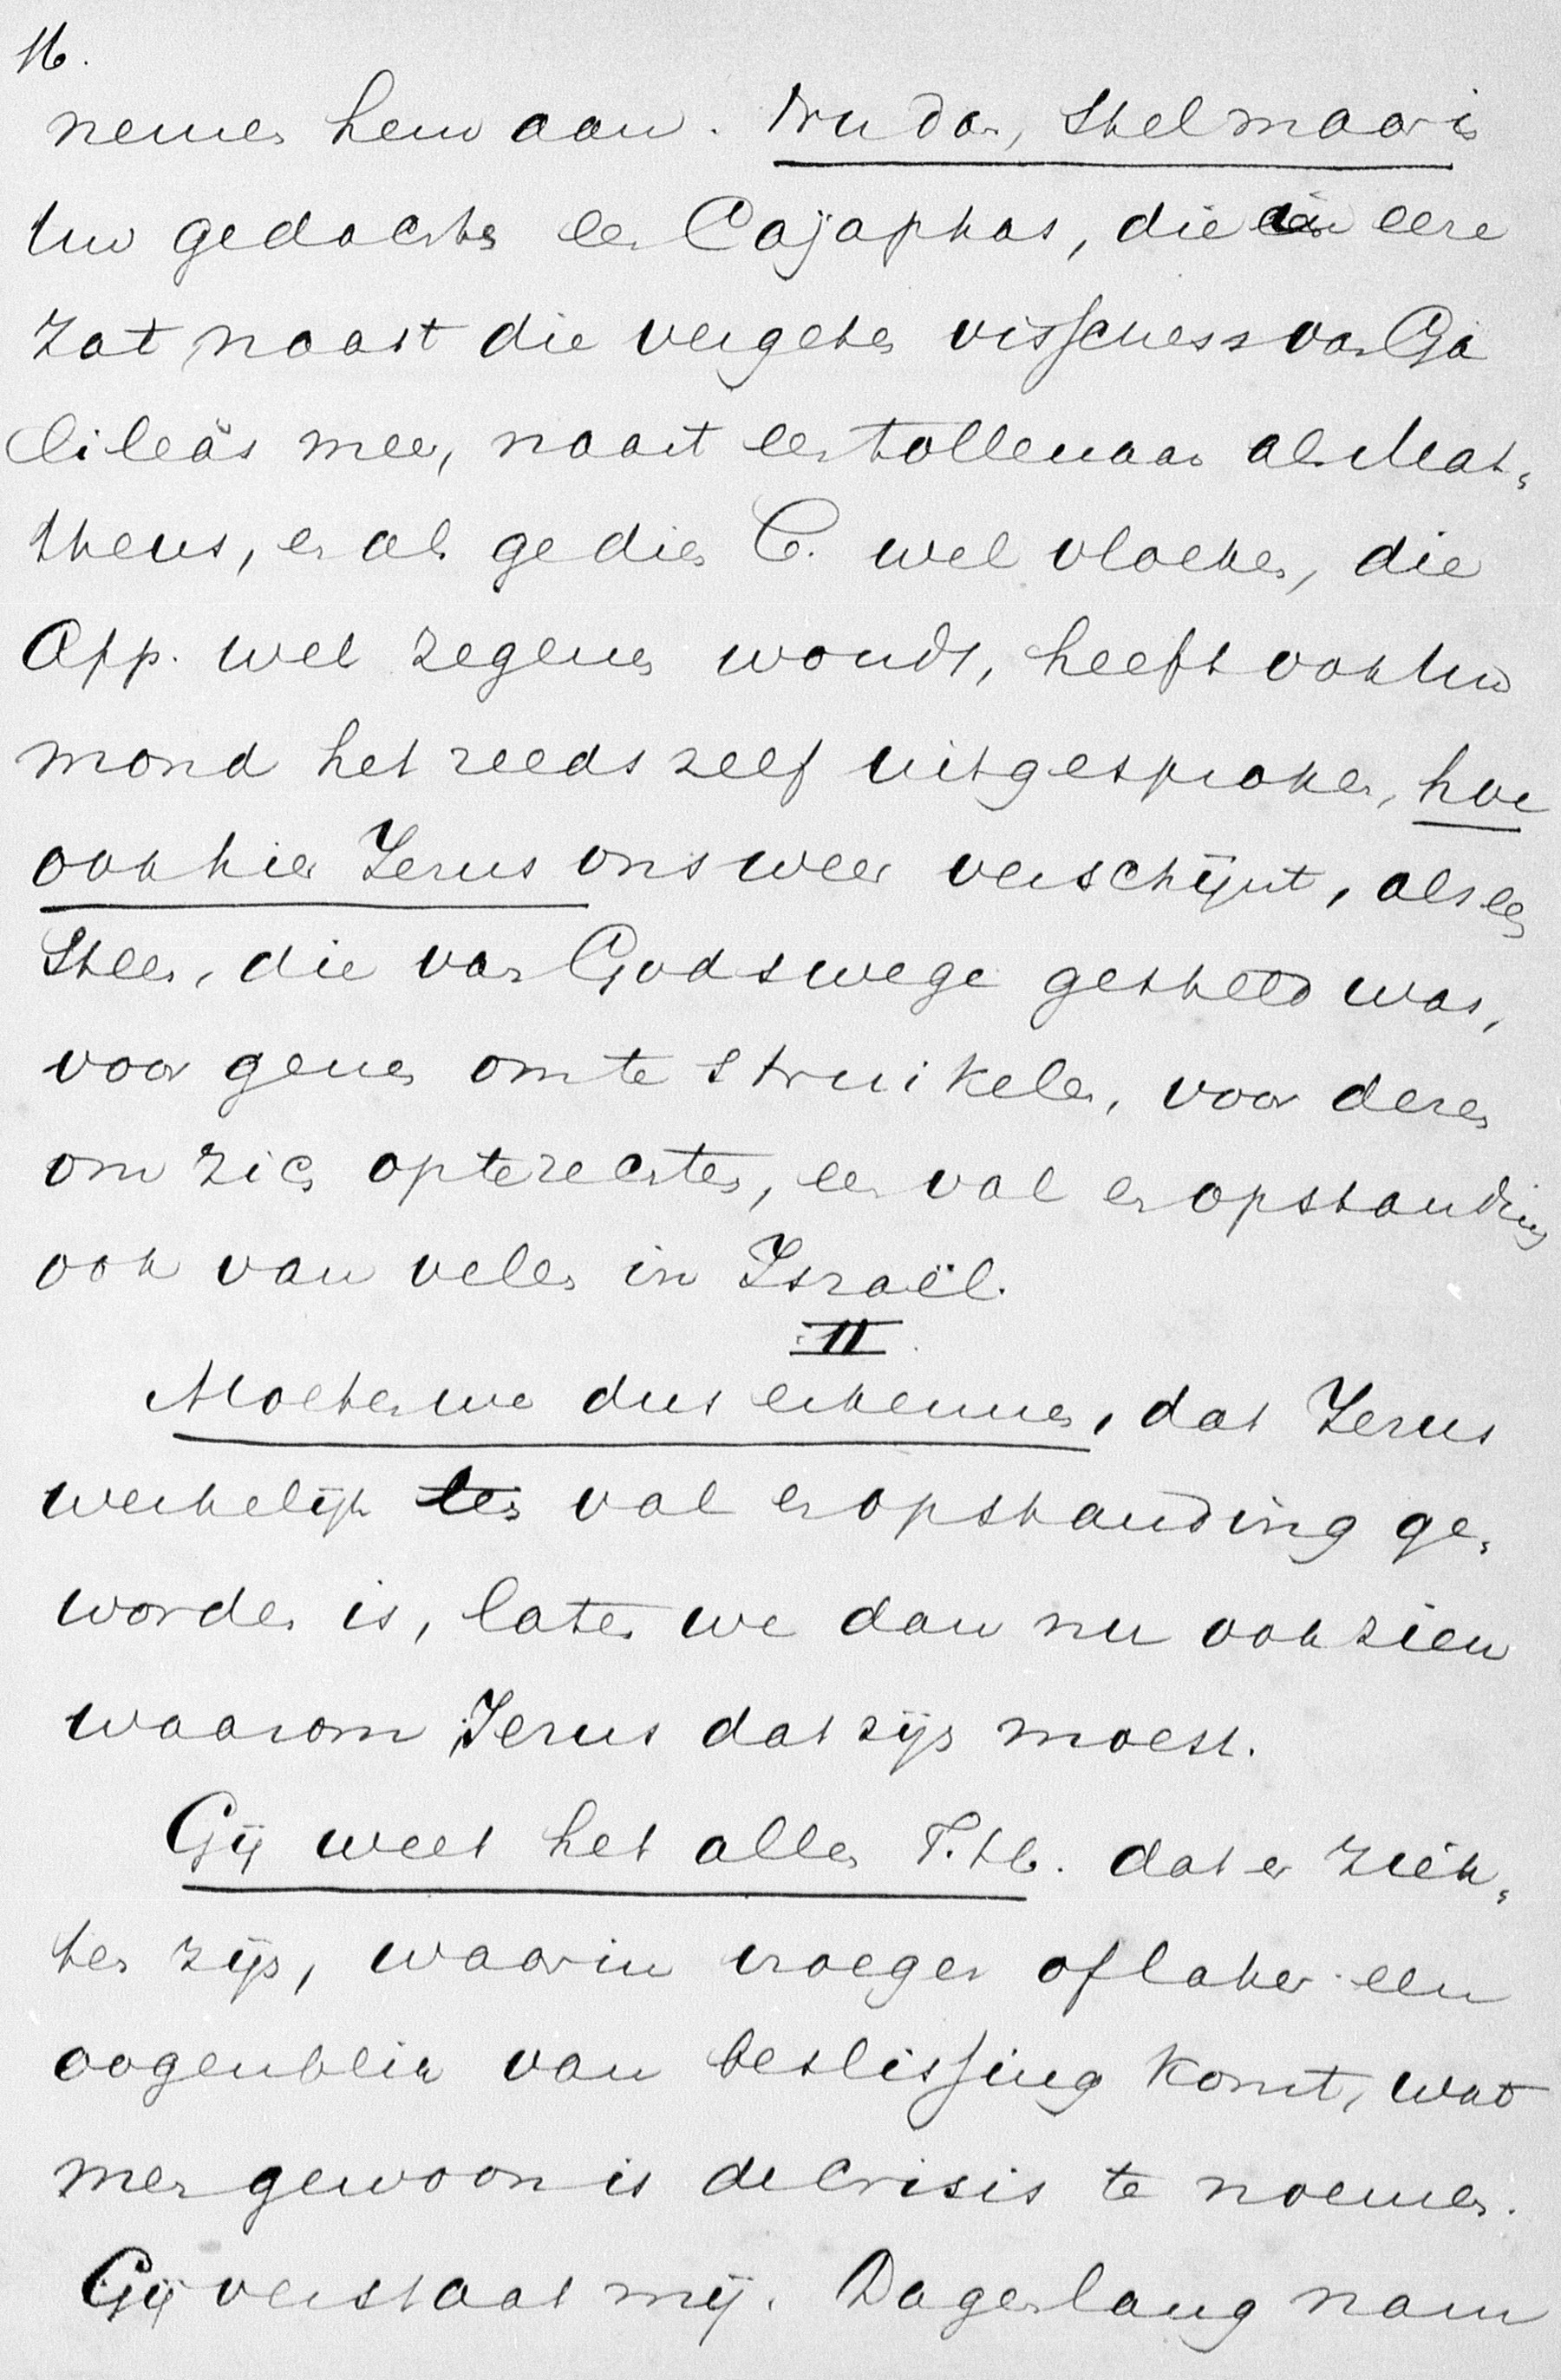 16.
nemen hem aan. Nu dan, stel maar in
Uw gedachten een Cajaphas, die in eere
zat naast die vergeten visschers van Ga
lileäs meer, naast een tollenaar als Mat-
theus, en als ge dien C. wel vloeken, die
App. wel zegenen woudt, heeft ook Uw
mond het reeds zelf uitgesproken, hoe
ook hier Jezus ons weer verschijnt, als een
Steen, die van Godswege gesteld was,
voor genen om te struikelen, voor dezen
om zich opterechten, een val en opstanding
ook van velen in Israël.
II
Moeten we dus erkennen, dat Jezus
werkelijk ten val en opstanding ge-
worden is, laten we dan nu ook zien
waarom Jezus dat zijn moest.
Gij weet het allen T.H. dat er ziek-
ten zijn, waarin vroeger of later een
oogenblik van beslissing komt, wat
men gewoon is de crisis te noemen.
Gij verstaat mij. Dagenlang nam